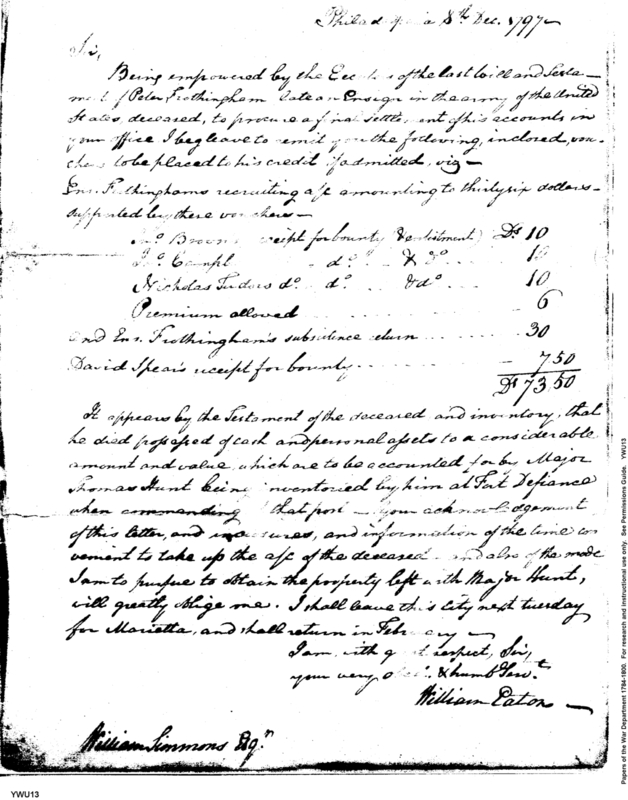 Philadelphia 8th Dec. 1797
Sir,
Being empowered by the Executors of the last Will and Testa-
ment of Peter Frothingham late an Ensign in the army of the United
States, deceased, to procure a final settlement of his accounts in
your office I beg leave to remit you the following, inclosed, vou-
chers to be placed to his credit if admitted, viz -
Ens. Frothinghams recruiting a/c amounting to thirtysix dollars -
supported by three vouchers -
Jno. Brown's receipt for bounty (& enlistment) Ds 10
Jno. Campl - do. & do. 10
Nicholas Tudors do. do. &do. 10
Premium allowed 6
and Ens. Frothingham's subsistence return 30
David Spear's receipt for bounty - 7 50
Ds 73,50
It appears by the Testament of the deceased and inventory, that
he died possessed of cash and personal assets to a considerable
amount and value, which are to be accounted for by Major
Thomas Hunt being inventoried by him at Fort Defiance
when commanding that post - your acknowledgement
of this letter, and inclosures, and information of the time con
vement to take up the a/c of the deceased - and also of the mode
I am to pursue to obtain the property left with Major Hunt,
will greatly oblige me. I shall leave this City next tuesday
for Marietta, and shall return in February -
I am, with great respect, Sir,
your very obedt. & humb Servt.
William Eaton -
William Simmons Esqr.
YWU13
Papers of the War Department 1784-1800. For research and instructional use only. See Permissions Guide. YWU13